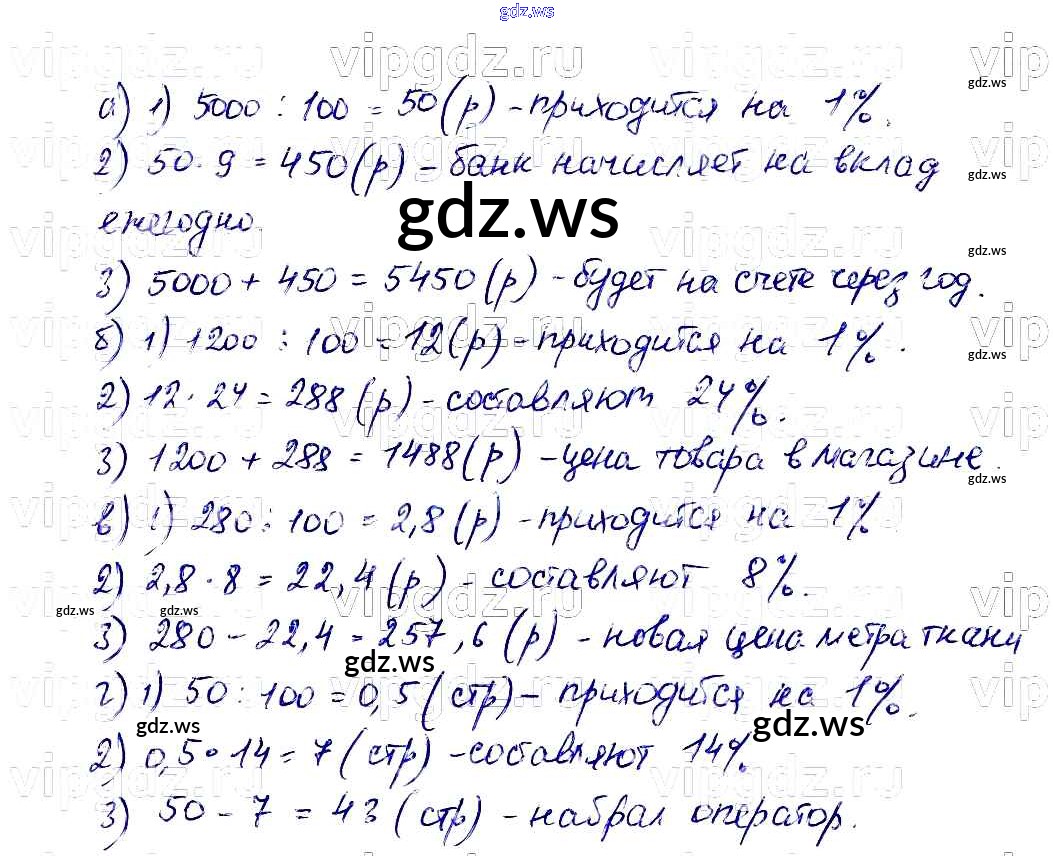 gdz.ws
vipgdz.ru vipgdz.ru vip
а) 1) 5000 : 100 = 50 (р) - приходится на 1%.
gdz.ws
2) 50 · 9 = 450 (р) - банк начисляет на вклад
gdz.ws
ежегодно.
gdz.ws
vipgdz.ru vipgdz.ru vip
gdz.ws
3) 5000 + 450 = 5450 (р) - будет на счете через год.
б) 1) 1200 : 100 = 12 (р) - приходится на 1%.
gdz.ws
2) 12 · 24 = 288 (р) - составляют 24%.
3) 1200 + 288 = 1488 (р) - цена товара в магазине.
gdz.ws
в) 1) 280 : 100 = 2,8 (р) - приходится на 1%
2) 2,8 · 8 = 22,4 (р) - составляют 8%.
gdz.ws gdz.ws
3) 280 - 22,4 = 257,6 (р) - новая цена метра ткани
gdz.ws
г) 1) 50 : 100 = 0,5 (стр) - приходится на 1%.
gdz.ws gdz.ws
2) 0,5 · 14 = 7 (стр) - составляют 14%
3) 50 - 7 = 43 (стр) - набрал оператор.